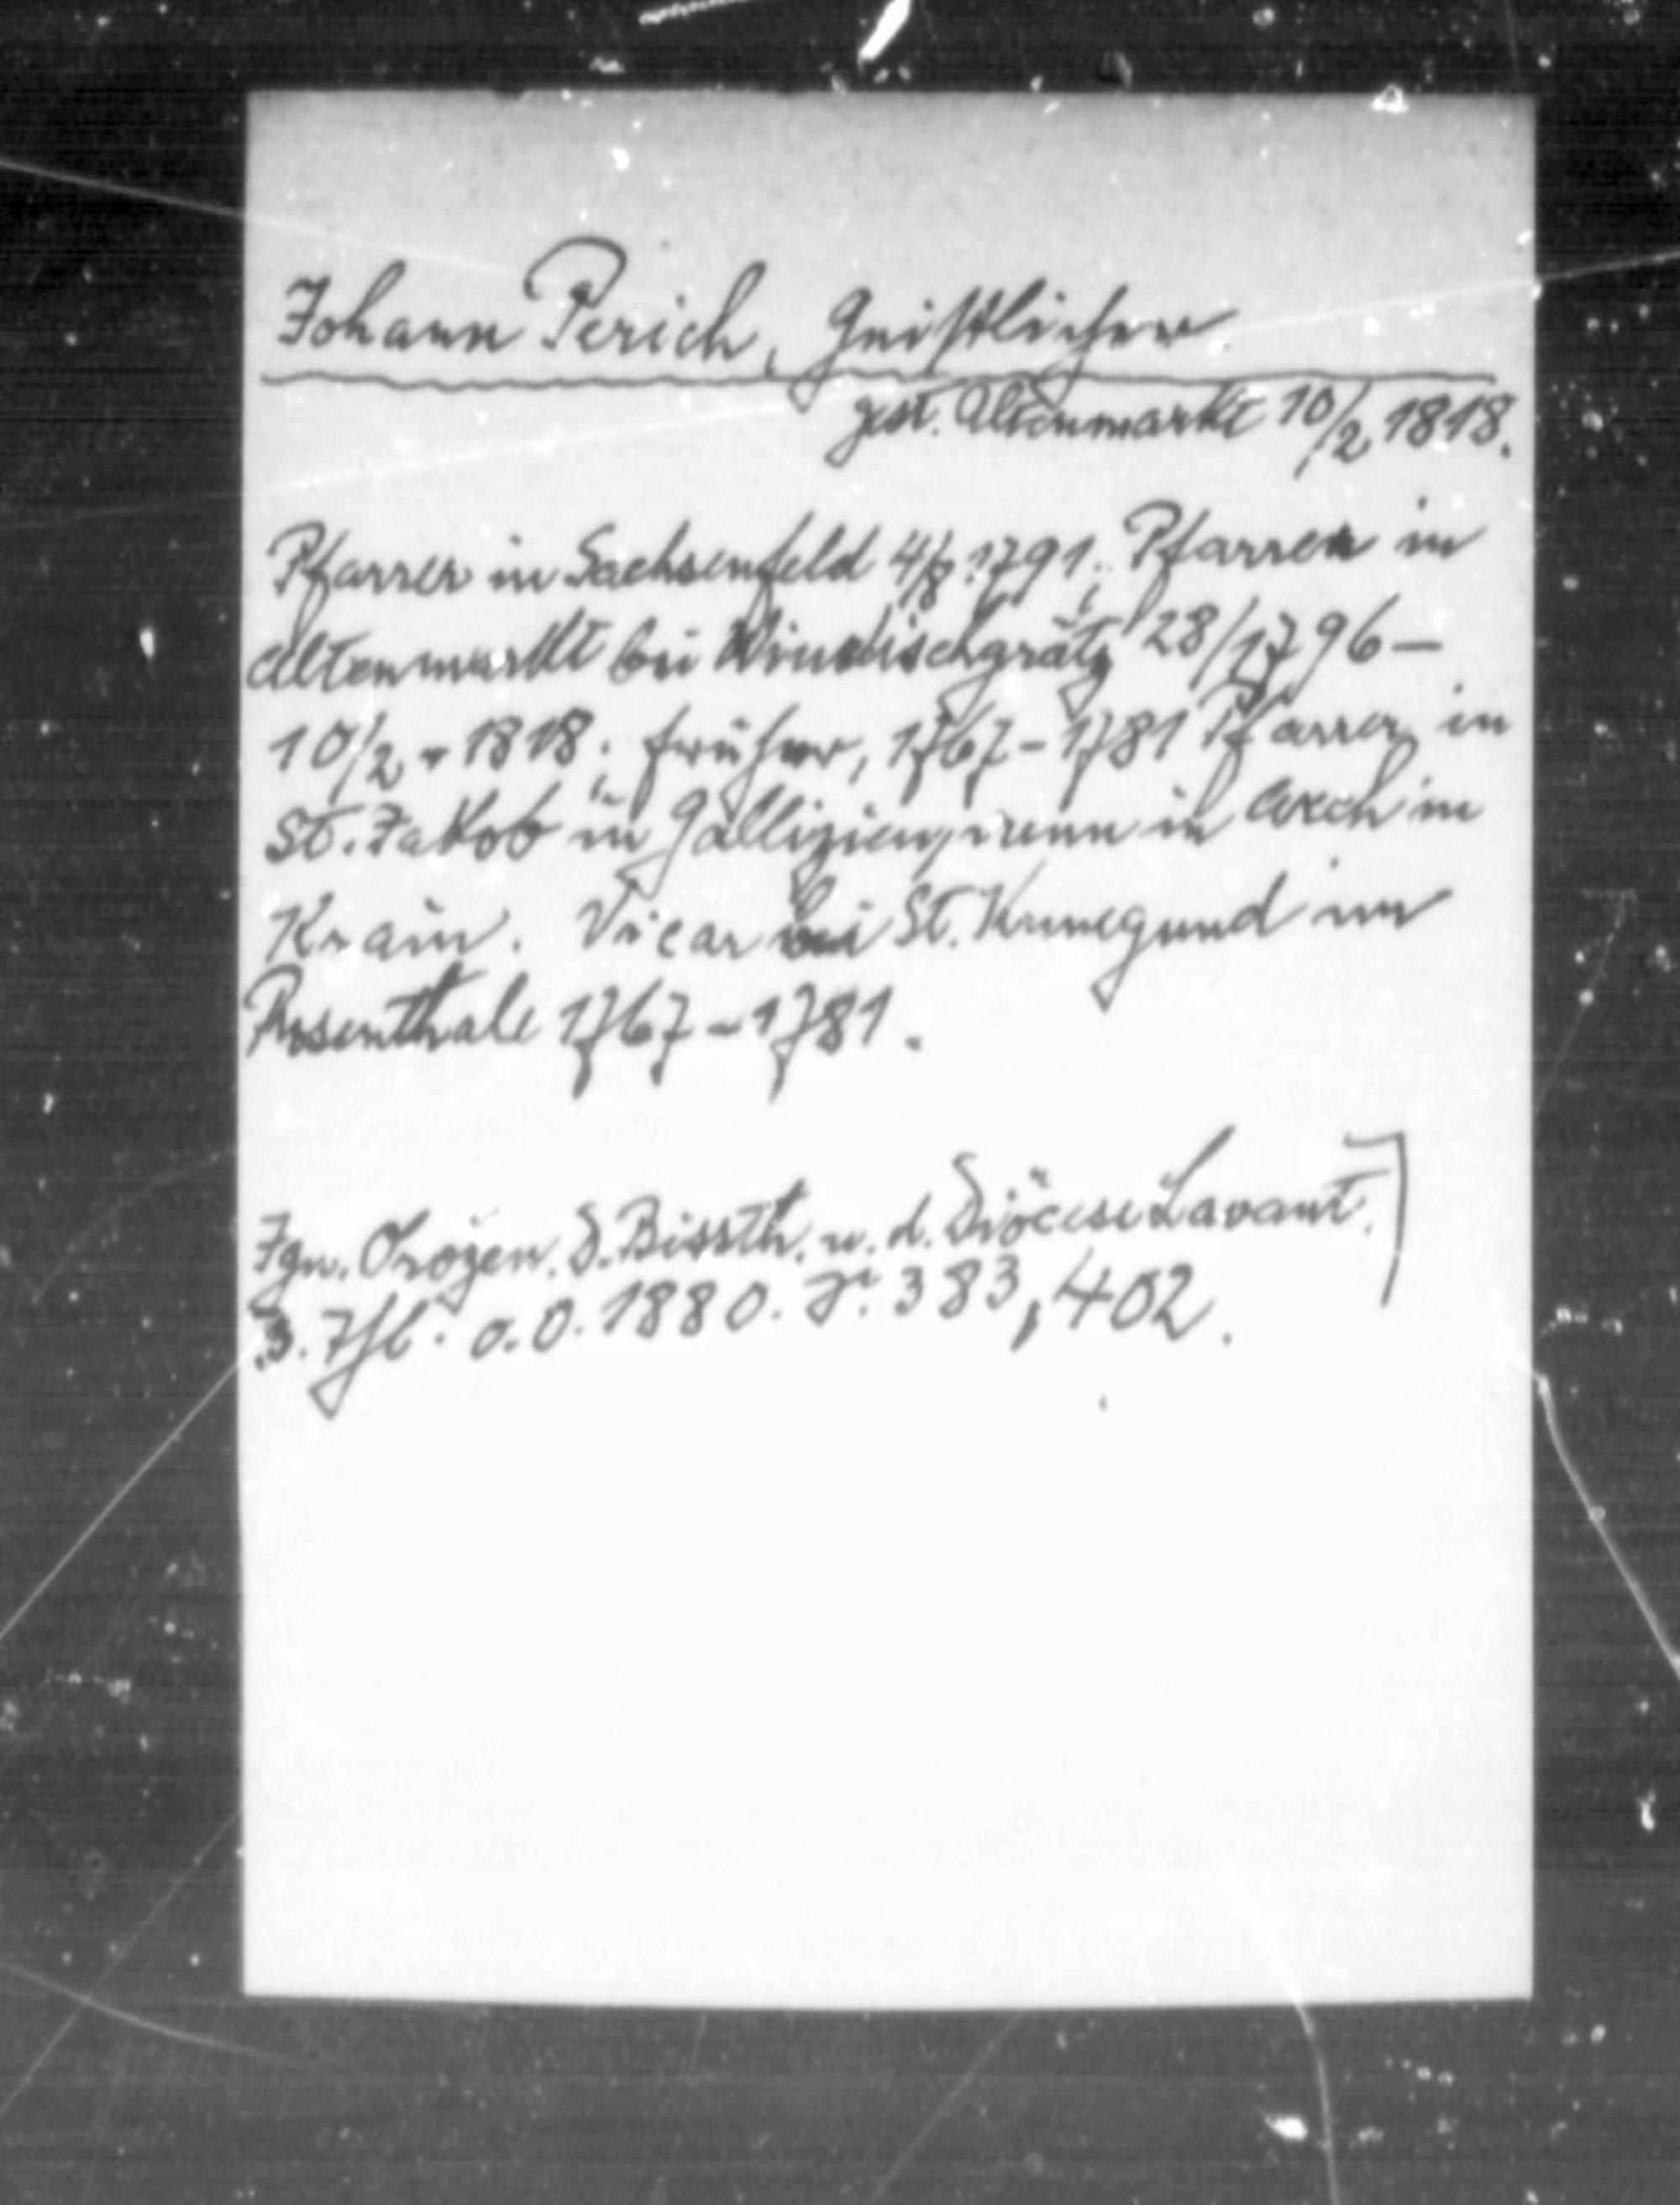 Johann Perich, Geistlicher
gest. Altenmarkt 10/2 1818.
Pfarrer in Sachsenfeld 4/8 1791; Pfarrer in
Altenmarkt bei Windischgrätz 28/1 1796 —
10/2 1818; früher, 1767–1781 Pfarrer in
St. Jakob in Gallizien, dann in Arch in
Krain. Vicar bei St. Kunegund im
Rosenthale 1767–1781.
Ign. Orožen. D. Bissth. u. d. Diöcese Lavant.
3. Thl. o.O. 1880. S. 383, 402.